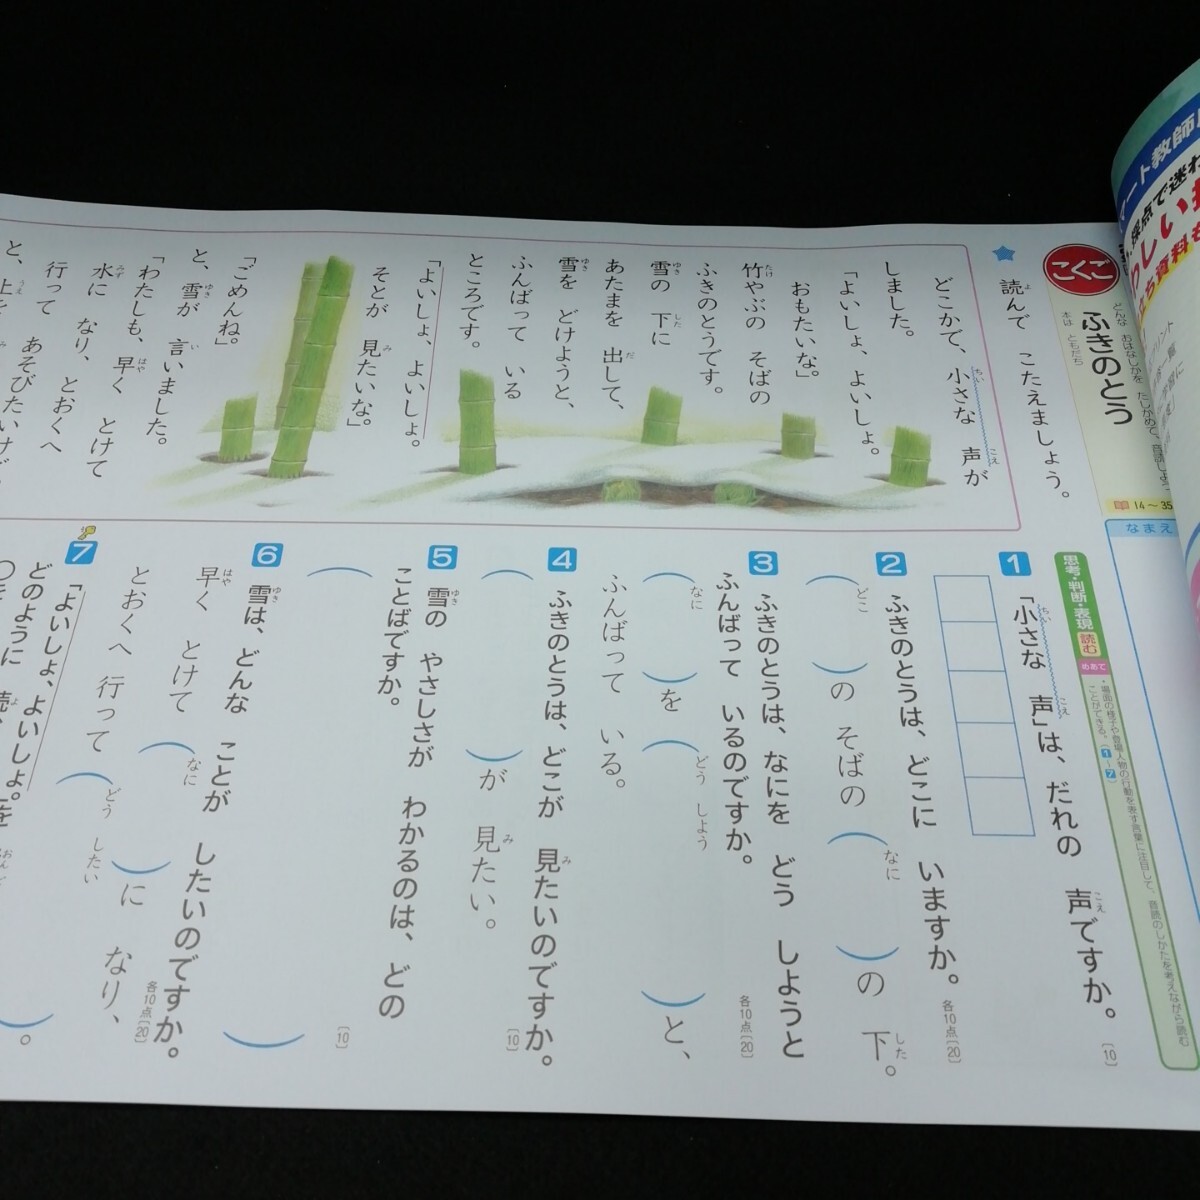 こくご
どんな おはなしかを たしかめて、音読しよう
本は ともだち
ふきのとう
14～35
なまえ
読んで こたえましょう。
どこかで、小さな 声が
しました。
「よいしょ、よいしょ。
おもたいな。」
竹やぶの そばの
ふきのとうです。
雪の 下に
あたまを 出して、
雪を どけようと、
ふんばって いる
ところです。
「よいしょ、よいしょ。
そとが 見たいな。」
「ごめんね。」
と、雪が 言いました。
「わたしも、早く とけて
水に なり、とおくへ
行って あそびたいけど
と、上を
思考・判断・表現 読む
めあて
・場面の様子や登場人物の行動を表す言葉に注目して、音読のしかたを考えながら読む
ことができる。(1～7)
1 「小さな 声」は、だれの 声ですか。
[10]
2 ふきのとうは、どこに いますか。
各10点[20]
( どこ )の そばの( なに )の 下。
3 ふきのとうは、なにを どう しようと
ふんばって いるのですか。
各10点[20]
( なに )を( どう しよう )と、
ふんばって いる。
4 ふきのとうは、どこが 見たいのですか。
[10]
( )が 見たい。
5 雪の やさしさが わかるのは、どの
ことばですか。
[10]
( )
6 雪は、どんな ことが したいのですか。
各10点[20]
早く とけて( なに )に なり、
とおくへ 行って( どう したい )。
7 「よいしょ、よいしょ。」を
どのように 読
〇を
ート教師用
採点で迷わ
わしい
資料を